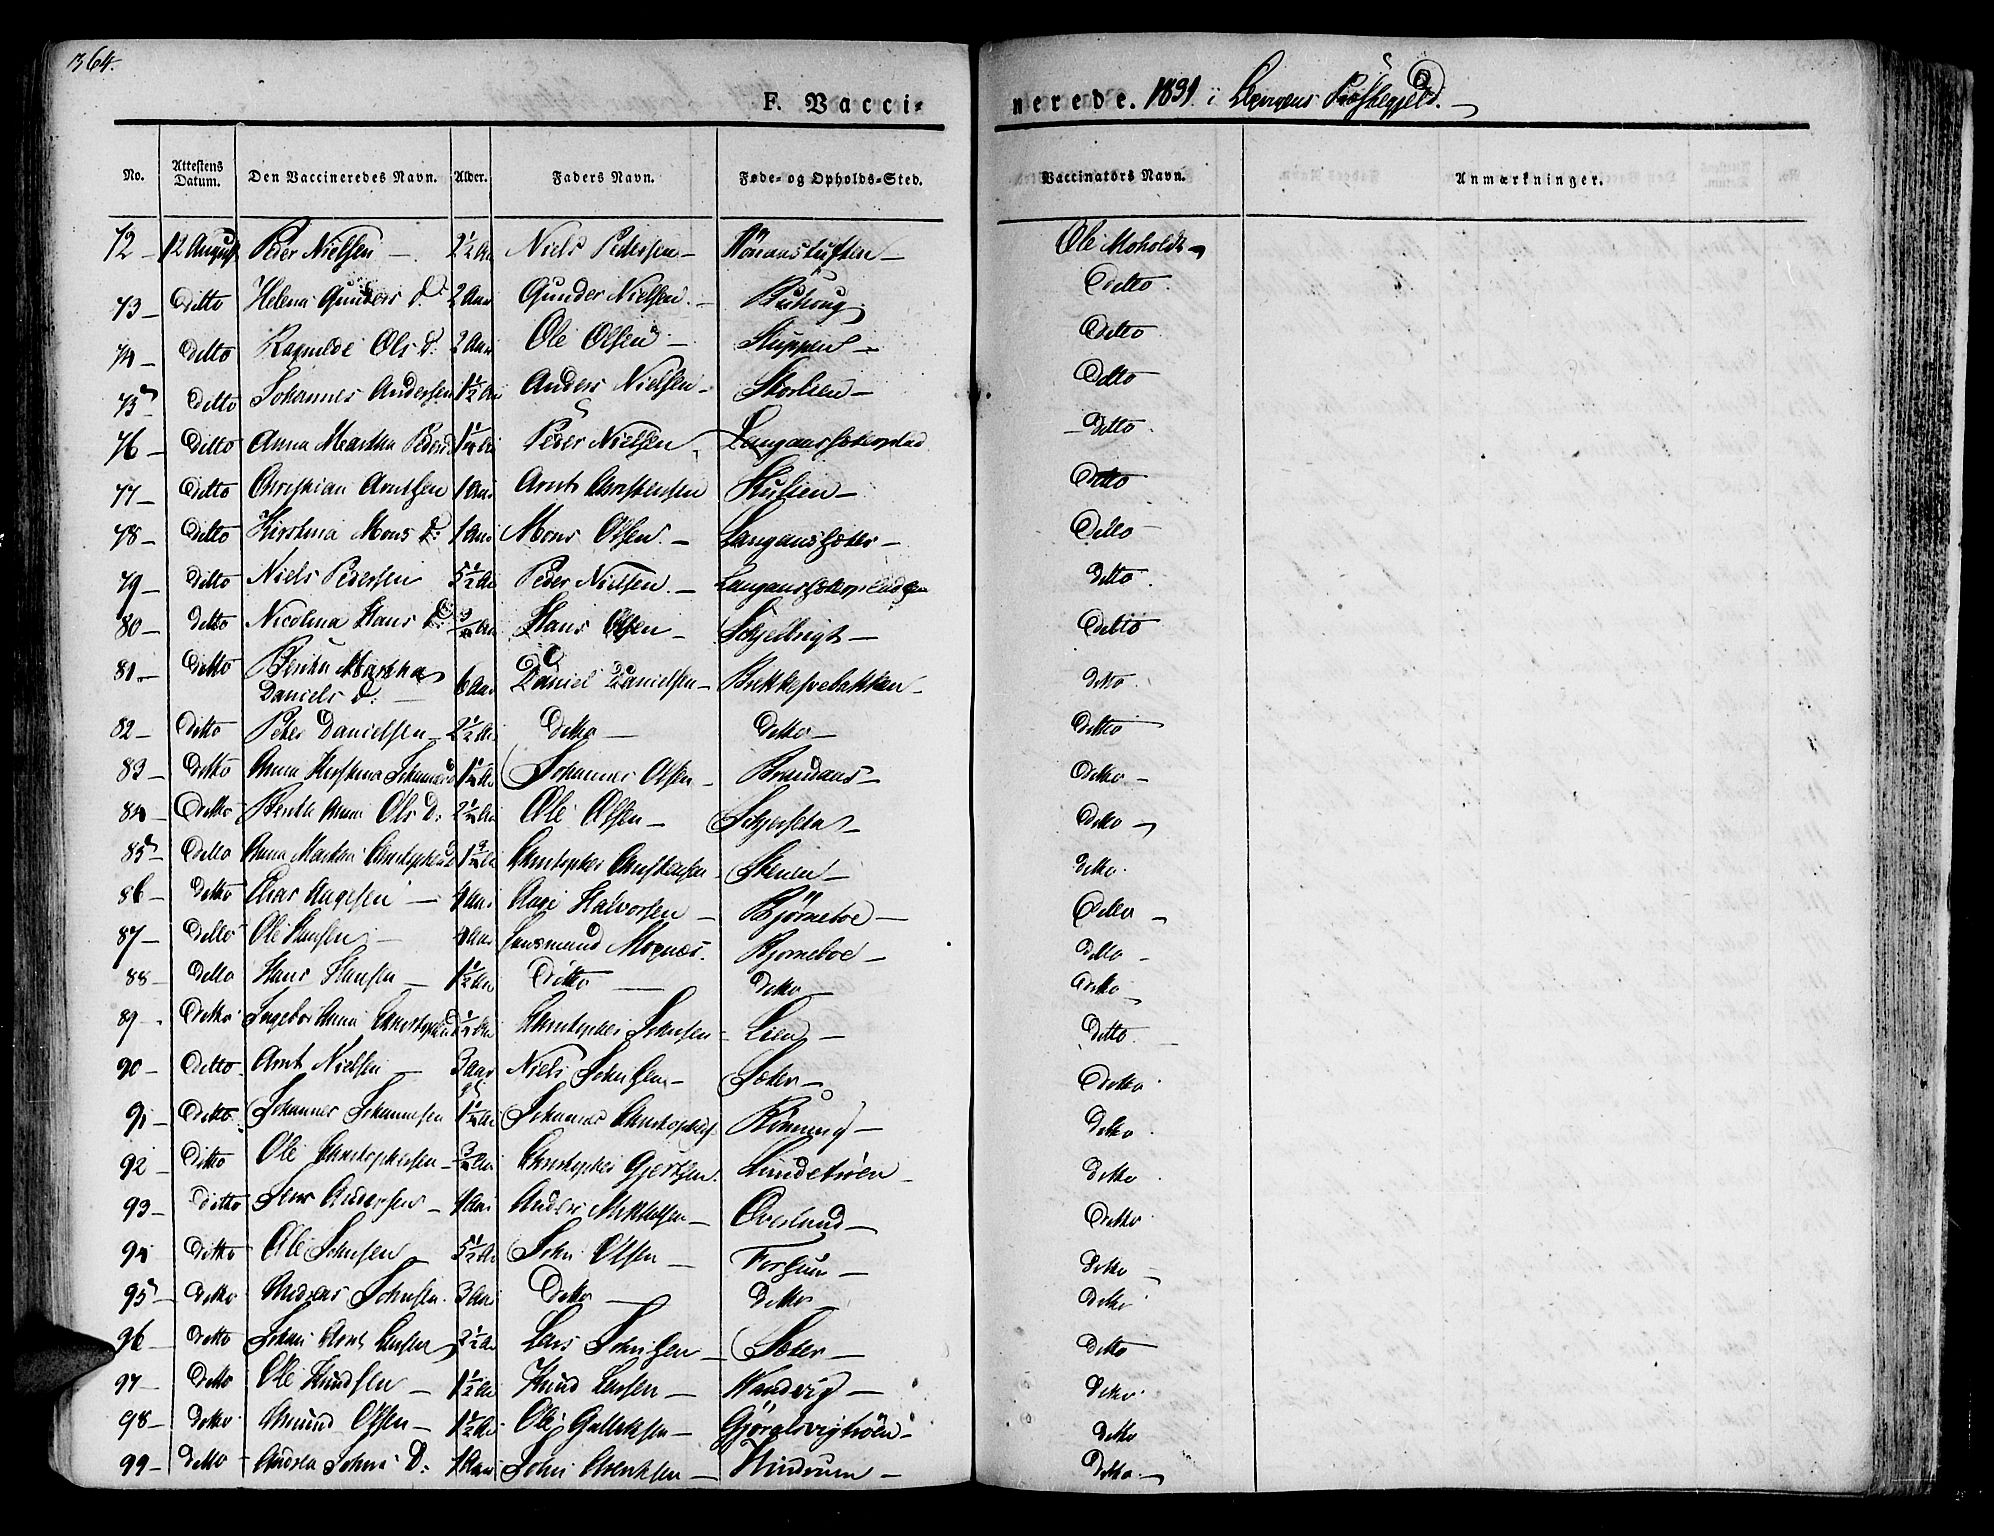 364.
F. Vacci-
nerede. 1831. i Præstegjeld.
No. Attestens Datum. Den Vaccineredes Navn. Alder. Faders Navn. Føde- og Opholds-Sted. Vaccinators Navn. Anmærkninger.
72 – 12 August Peder Nielsen – 2 1/2 Aar Niels Pedersen – Ole Moholdt
73 – Ditto Helena Gunders D: 2 Aar Gunder Nielsen. – Ditto
74 – Ditto Ragnilde Ols D: 2 Aar Ole Olsen – Ditto
75 – Ditto Johannes Andersen 1 1/2 Aar Anders Nielsen – Storlien – Ditto
76 – Ditto Anna Martha Peders D 1 1/4 Aar Peder Nielsen – Ditto
77 – Ditto Christian Arntsen 1 Aar Arnt Christensen – Ditto
78 – Ditto Kirstina Mons D: 1 Aar Mons Olsen. – Ditto
79 – Ditto Niels Pedersen 5 1/2 Aar Peder Nielsen. – Ditto
80 – Ditto Nicolina Hans D: 3/4 Aar Hans Olsen – Ditto
81 – Ditto Martha
Daniels D: – 6 Aar Daniel Danielsen – Ditto
82 – Ditto Peter Danielsen – 2 1/2 Aar Ditto – Ditto – Ditto
83 – Ditto Anna Kirstina Johannes D 1 1/4 Aar Johannes Olsen – Ditto –
84 – Ditto Berith Anna Ols D: 2 1/4 Aar Ole Olsen – Ditto –
85 – Ditto Anna Martha Christopher D 1 3/4 Aar Christopher Christensen – Ditto
86 – Ditto Aagesen – 4 Aar Aage Halvorsen – Bjørneboe – Ditto –
87 – Ditto Ole Hansen – 4 Aar Lensmand Moxnæs. Bjørneboe – Ditto –
88 – Ditto Hans Hansen – 1 1/2 Aar Ditto – Ditto – Ditto
89 – Ditto Ingebor Anna Christopher D 1/2 Aar Christopher Johnsen – Lien – Ditto
90 – Ditto Arnt Nielsen – 3 Aar Niels Johnsen – Sæter – Ditto
91 – Ditto Johannes Johannesen 1 1/4 Aar Johannes Christophers. Rønning – Ditto
92 – Ditto Ole Christophersen – 3/4 Aar Christopher Gjertsen. Lundetrøen – Ditto
93 – Ditto Jens Andersen – 4 Aar Anders Mikkelsen – Overland – Ditto
94 – Ditto Ole Johnsen – 5 1/2 Aar John Olsen – Forsun – Ditto –
95 – Ditto Andreas Johnsen 3 Aar Ditto – Ditto – Ditto
96 – Ditto Johan Arnt Larsen 2 1/2 Aar Lars Johnsen – Sæter – Ditto
97 – Ditto Ole Knudsen – 1 1/2 Aar Knud Larsen – Vandvig – Ditto
98 – Ditto Amund Olsen – 1 1/2 Aar Ole Gullaksen – Ditto
99 – Ditto Andrea Johns D: 1 Aar John Arentsen – Hindrum – Ditto –